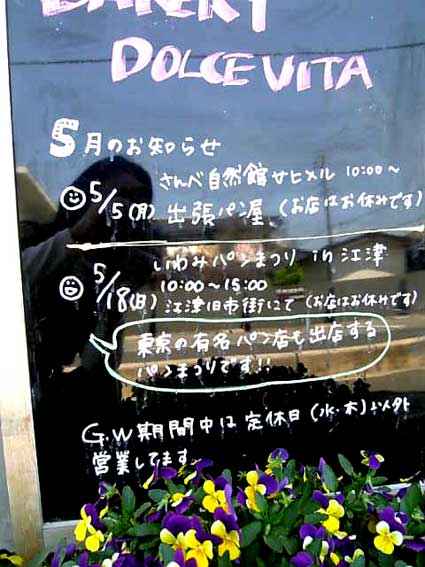 BAKERY
DOLCE VITA
5月のお知らせ
さんべ自然館サヒメル 10:00～
5/5(月) 出張パン屋 (お店はお休みです)
いわみパンまつり in 江津
10:00～15:00
5/18(日) 江津旧市街にて (お店はお休みです)
東京の有名パン店も出店する
パンまつりです!!
G.W期間中は定休日(水・木)以外
営業してます